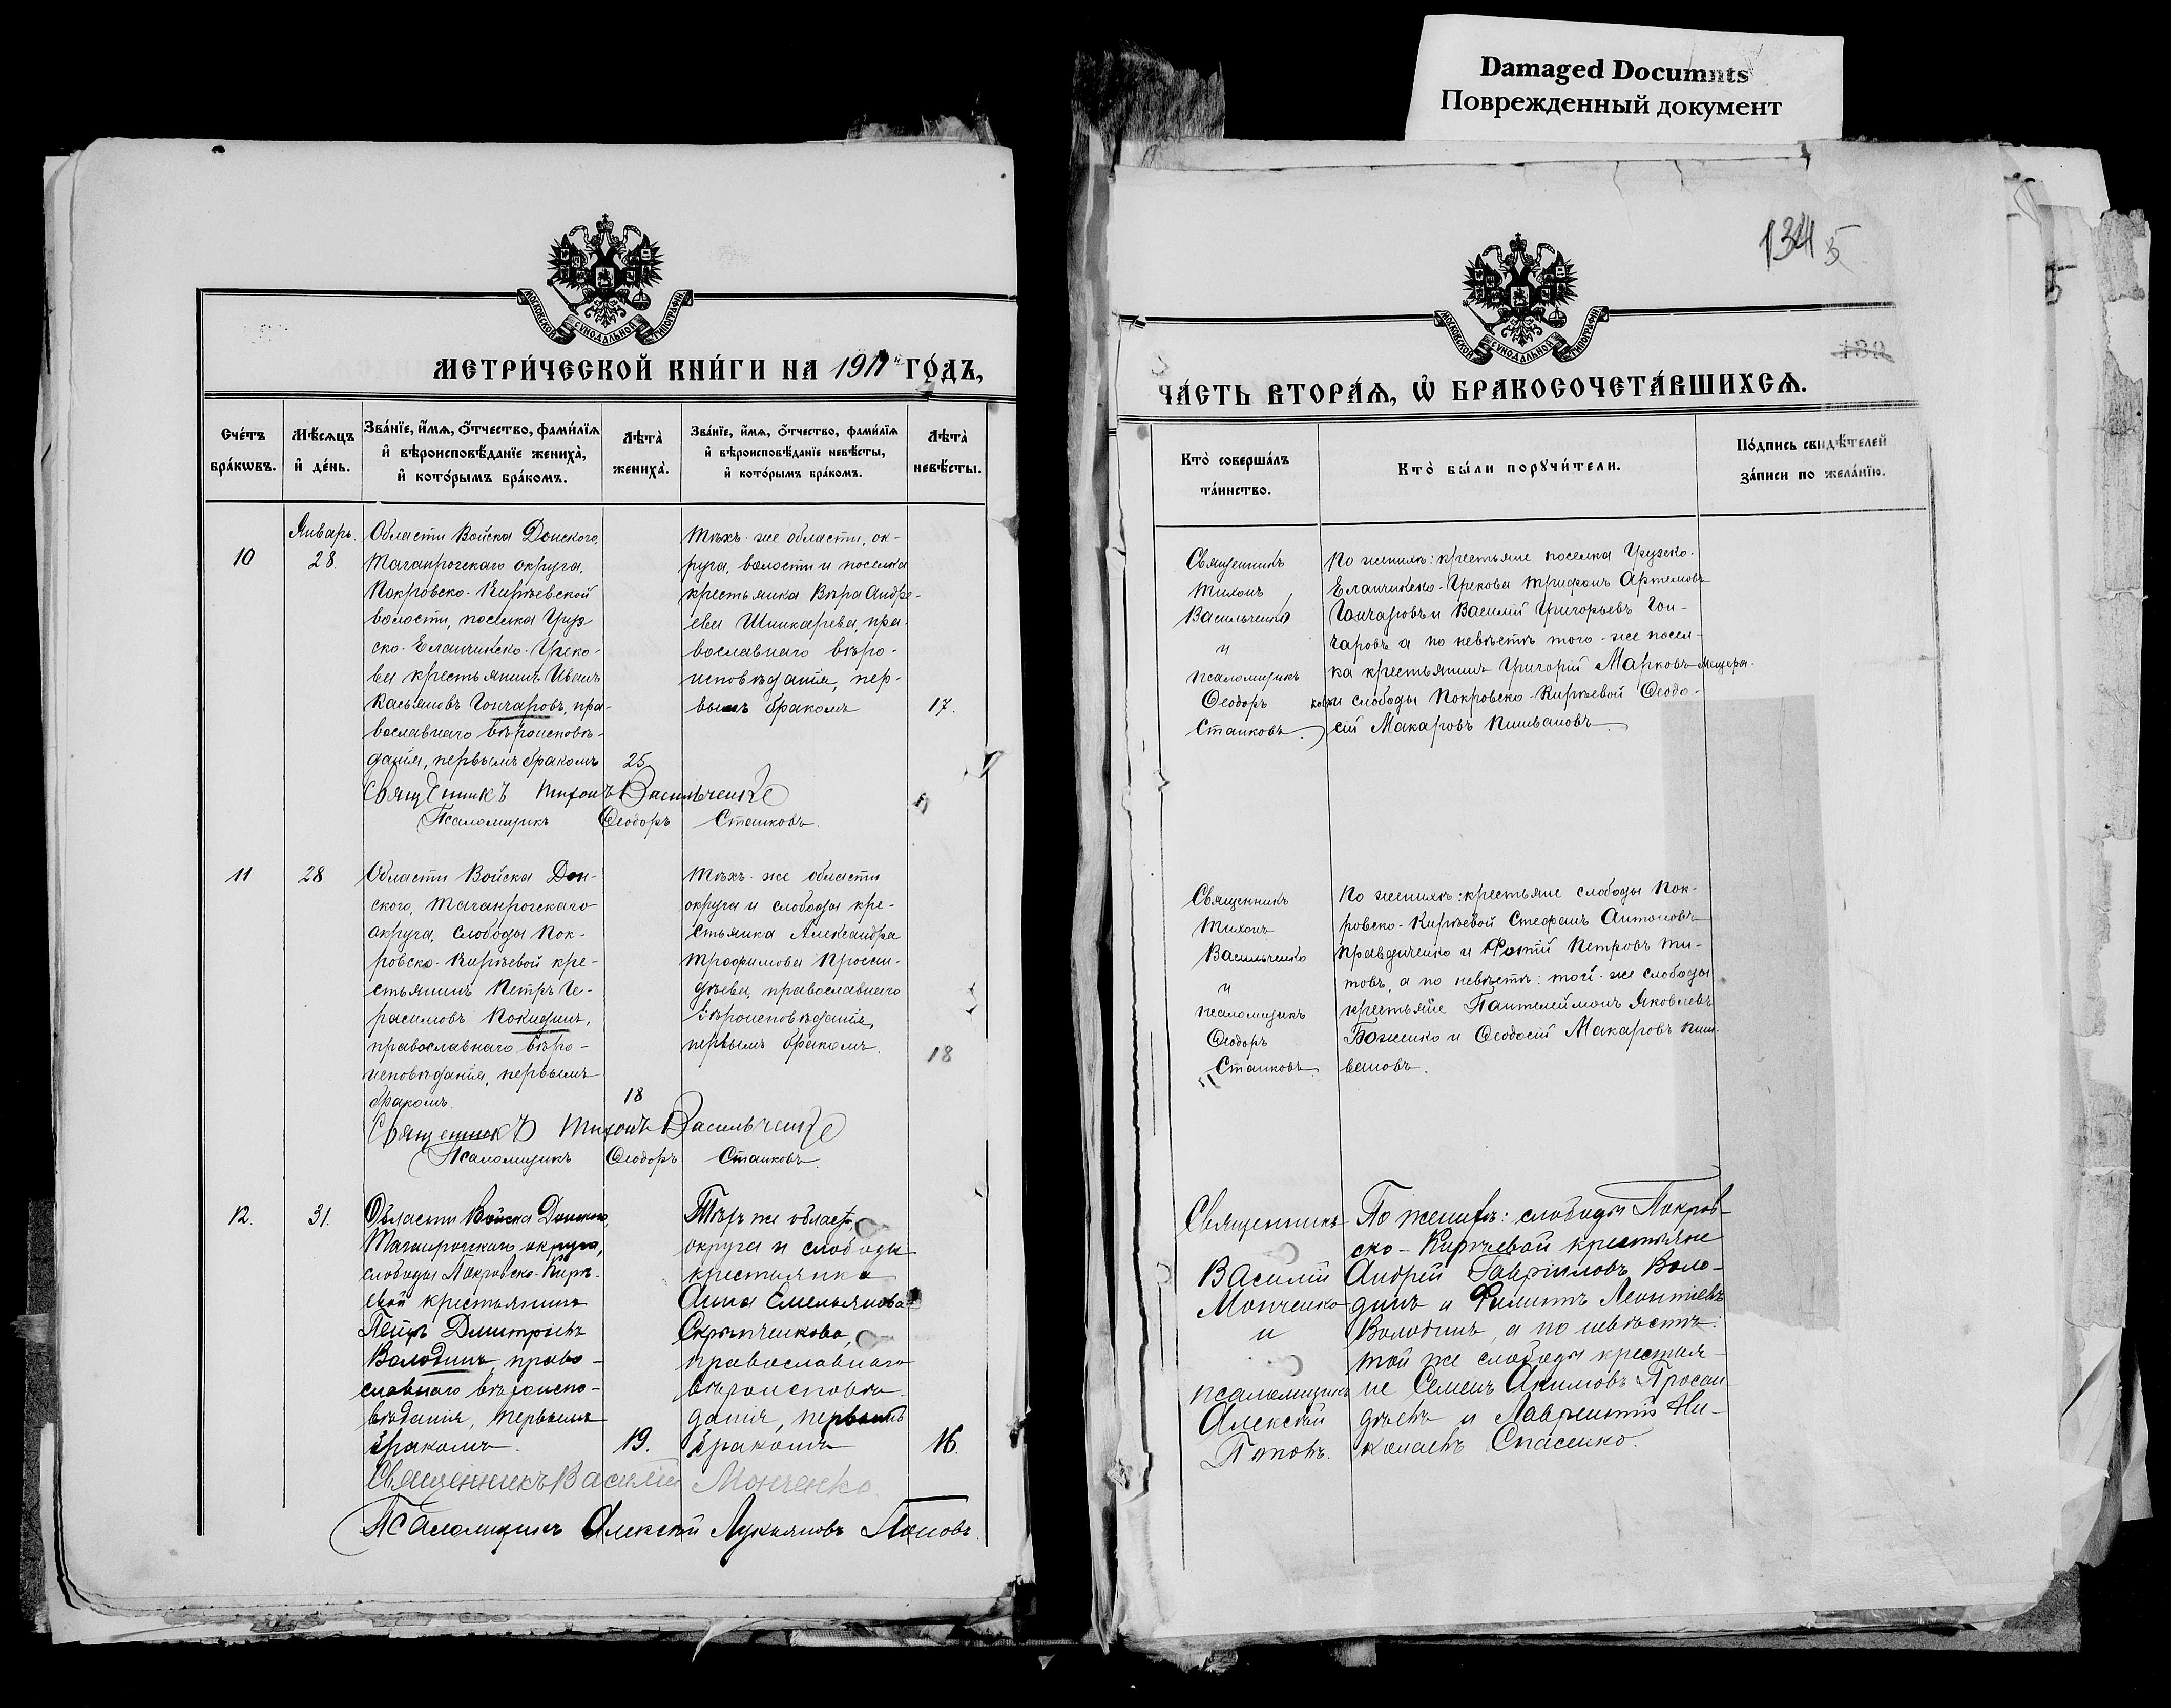 Damaged Documnts
Поврежденный документ
МОСКОВСКОЙ СѴНОДАЛЬНОЙ ТИПОГРАФІИ
МЕТРИ́ЧЕСКОЙ КНИ́ГИ НА 1911й ГО́ДЪ,
Сче́тъ бра́кωвъ.
Мѣ́сяцъ и҆ де́нь.
Зва́нїе, и҆́мѧ, ѻ҆́тчество, фами́лїѧ и҆ вѣроисповѣ́данїе жениха̀, и҆ кото́рымъ бра́комъ.
Лѣта̀ жениха̀.
Зва́нїе, и҆́мѧ, ѻ҆́тчество, фами́лїѧ и҆ вѣроисповѣ́данїе невѣ́сты, и҆ кото́рымъ бра́комъ.
Лѣта̀ невѣ́сты.
10
Январь.
28.
Области Войска Донского,
Таганрогскаго округа,
Покровско-Кирѣевской
волости, поселка Груз
ско-Еланчикско-Греко-
ва крестьянинъ Иванъ
Касьяновъ Гончаровъ, пра-
вославнаго вѣроисповѣ-
данія, первымъ бракомъ
25
Тѣхъ-же области, ок-
руга, волости и поселка
крестьянка Вѣра Андре-
ева Шинкарева, пра-
вославнаго вѣро-
исповѣданія, пер-
вымъ бракомъ
17.
Священникъ Тихонъ Васильченко
Псаломщикъ Ѳеодоръ Станковъ.
11
28
Области Войска Дон-
ского, Таганрогскаго
округа, слободы Пок-
ровско-Кирѣевой кре-
стьянинъ Петръ Ге-
расимовъ Покидинъ,
православнаго вѣро-
исповѣданія, первымъ
бракомъ.
18
Тѣхъ-же области
округа и слободы кре-
стьянка Александра
Трофимова Просан-
дѣева, православнаго
вѣроисповѣданія,
первымъ бракомъ.
18
Священникъ Тихонъ Васильченко
Псаломщикъ Ѳеодоръ Станковъ.
12.
31.
Области Войска Донского,
Таганрогскаго округа,
слободы Покровско-Кирѣ-
евой крестьянинъ
Петръ Дмитріевъ
Володинъ, право-
славнаго вѣроиспо-
вѣданія, первымъ
бракомъ.
19.
Тѣхъ же област,
округа и слободы
крестьянка
Анна Емельянова
Скрыпченкова,
православнаго
вѣроисповѣ-
данія, первымъ
бракомъ
16.
Священникъ Василій Монченко.
Псаломщикъ Алексѣй Лукьяновъ Поповъ.
134 5
МОСКОВСКОЙ СѴНОДАЛЬНОЙ ТИПОГРАФІИ
ЧА́СТЬ ВТОРА́Ѧ, Ѡ҆ БРАКОСОЧЕТА́ВШИХСѦ.
Кто̀ соверша́лъ та́инство.
Кто̀ бы́ли порꙋчи́тели.
По́дпись свидѣ́телей за́писи по жела́нїю.
Священникъ
Тихонъ
Васильченко
и
псаломщикъ
Ѳеодоръ
Станковъ.
По женихѣ: крестьяне поселка Грузско-
Еланчикско-Грекова Трифонъ Артемовъ
Гончаровъ и Василій Григорьевъ Гон-
чаровъ а по невѣстѣ того-же посел-
ка крестьянинъ Григорій Марковъ Мещеря-
ковъ и слободы Покровско-Кирѣевой Ѳеодо-
сій Макаровъ Пишвановъ.
Священникъ
Тихонъ
Васильченко
и
псаломщикъ
Ѳеодоръ
Станковъ.
По женихѣ: крестьяне слободы Пок-
ровско-Кирѣевой Стефанъ Антоновъ
Правдиченко и Фотій Петровъ Ти-
товъ, а по невѣстѣ: той-же слободы
крестьяне Пантелеймонъ Яковлевъ
Боженко и Ѳеодосій Макаровъ Пиш-
вановъ.
Священникъ
Василій
Монченко
и
псаломщикъ
Алексѣй
Поповъ.
По женихѣ: слободы Покров-
ско-Кирѣевой крестьяне
Андрей Гавріиловъ Воло-
динъ и Филиппъ Леонтіевъ
Володинъ, а по невѣстѣ:
той же слободы крестья-
не Семенъ Акимовъ Просан-
дѣевъ и Лаврентій Ни-
колаевъ Спасенко.